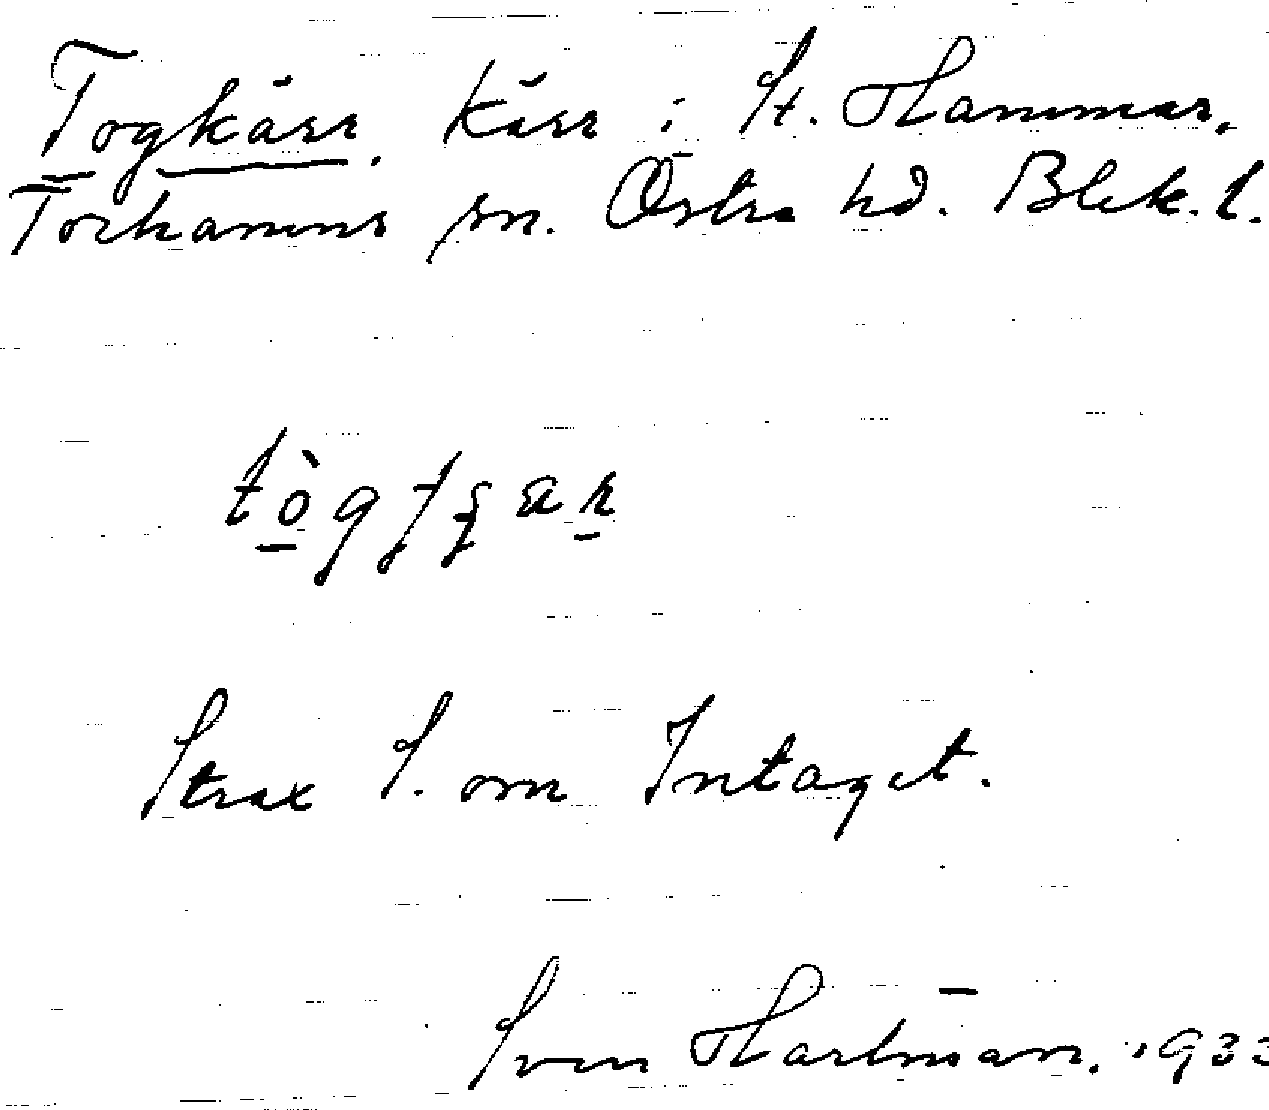 Togkärr, Kärr i St. Hammar,
Torhamns sn. Östra hd. Blek. l.
Strax S. om Intaget.
Sven Hartman. 1933